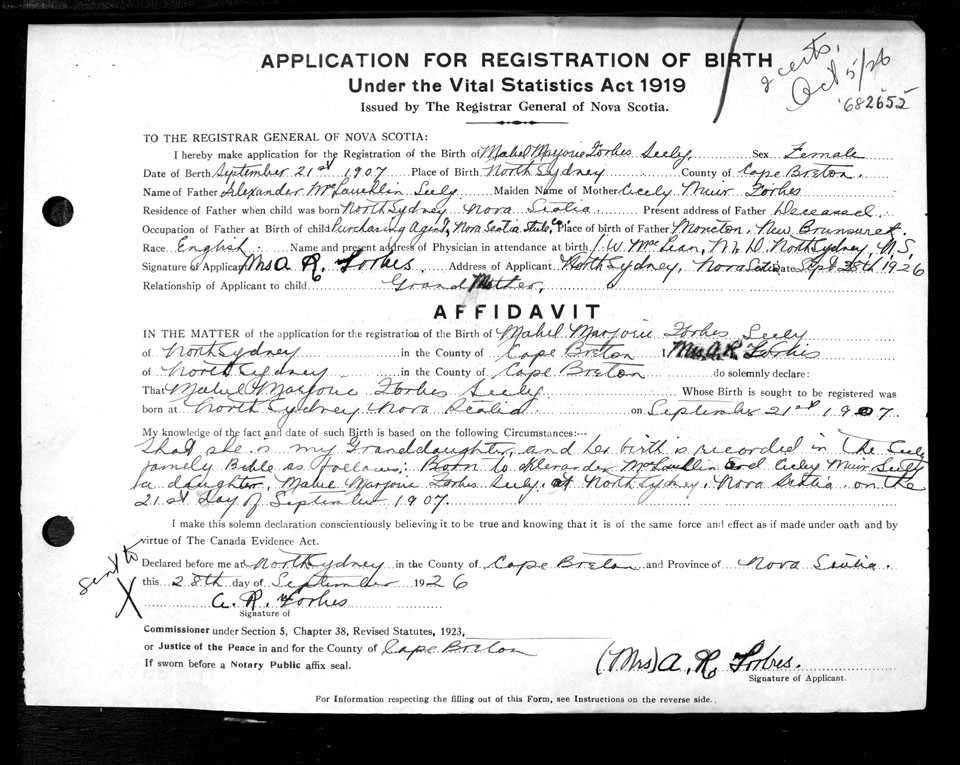 APPLICATION FOR REGISTRATION OF BIRTH
Under the Vital Statistics Act 1919
Issued by The Registrar General of Nova Scotia.
2 certs.
Oct 5/26
682652
TO THE REGISTRAR GENERAL OF NOVA SCOTIA:
I hereby make application for the Registration of the Birth of Mabel Marjorie Forbes Seely, Sex Female
Date of Birth September 21st 1907 Place of Birth North Sydney County of Cape Breton.
Name of Father Alexander McLauchlin Seely Maiden Name of Mother Cicely Muir Forbes
Residence of Father when child was born North Sydney Nova Scotia Present address of Father Deceased.
Occupation of Father at Birth of child Purchasing Agent, Nova Scotia Steel Co. Place of birth of Father Moncton, New Brunswick.
Race English. Name and present address of Physician in attendance at birth J. W. McLean, M.D. North Sydney, N.S.
Signature of Applicant Mrs A R. Forbes. Address of Applicant North Sydney, Nova Scotia Date Sept 28th 1926
Relationship of Applicant to child Grand Mother.
AFFIDAVIT
IN THE MATTER of the application for the registration of the Birth of Mabel Marjorie Forbes Seely
of North Sydney in the County of Cape Breton I Mrs. A. R. Forbes
of North Sydney in the County of Cape Breton do solemnly declare:
That Mabel Marjorie Forbes Seely Whose Birth is sought to be registered was
born at North Sydney, Nova Scotia. on September 21st 1907.
My knowledge of the fact and date of such Birth is based on the following Circumstances:—
That she is my Granddaughter, and her birth is recorded in the Seely
family Bible as follows: Born to Alexander McLauchlin and Cicely Muir Seely
a daughter, Mabel Marjorie Forbes Seely, at North Sydney, Nova Scotia on the
21st day of September 1907.
I make this solemn declaration conscientiously believing it to be true and knowing that it is of the same force and effect as if made under oath and by
virtue of The Canada Evidence Act.
Sent to
X
Declared before me at North Sydney in the County of Cape Breton and Province of Nova Scotia.
this 28th day of September 1926
A. R. Forbes
Signature of
Commissioner under Section 5, Chapter 38, Revised Statutes, 1923,
or Justice of the Peace in and for the County of Cape Breton
If sworn before a Notary Public affix seal.
(Mrs) A. R. Forbes.
Signature of Applicant.
For Information respecting the filling out of this Form, see Instructions on the reverse side.